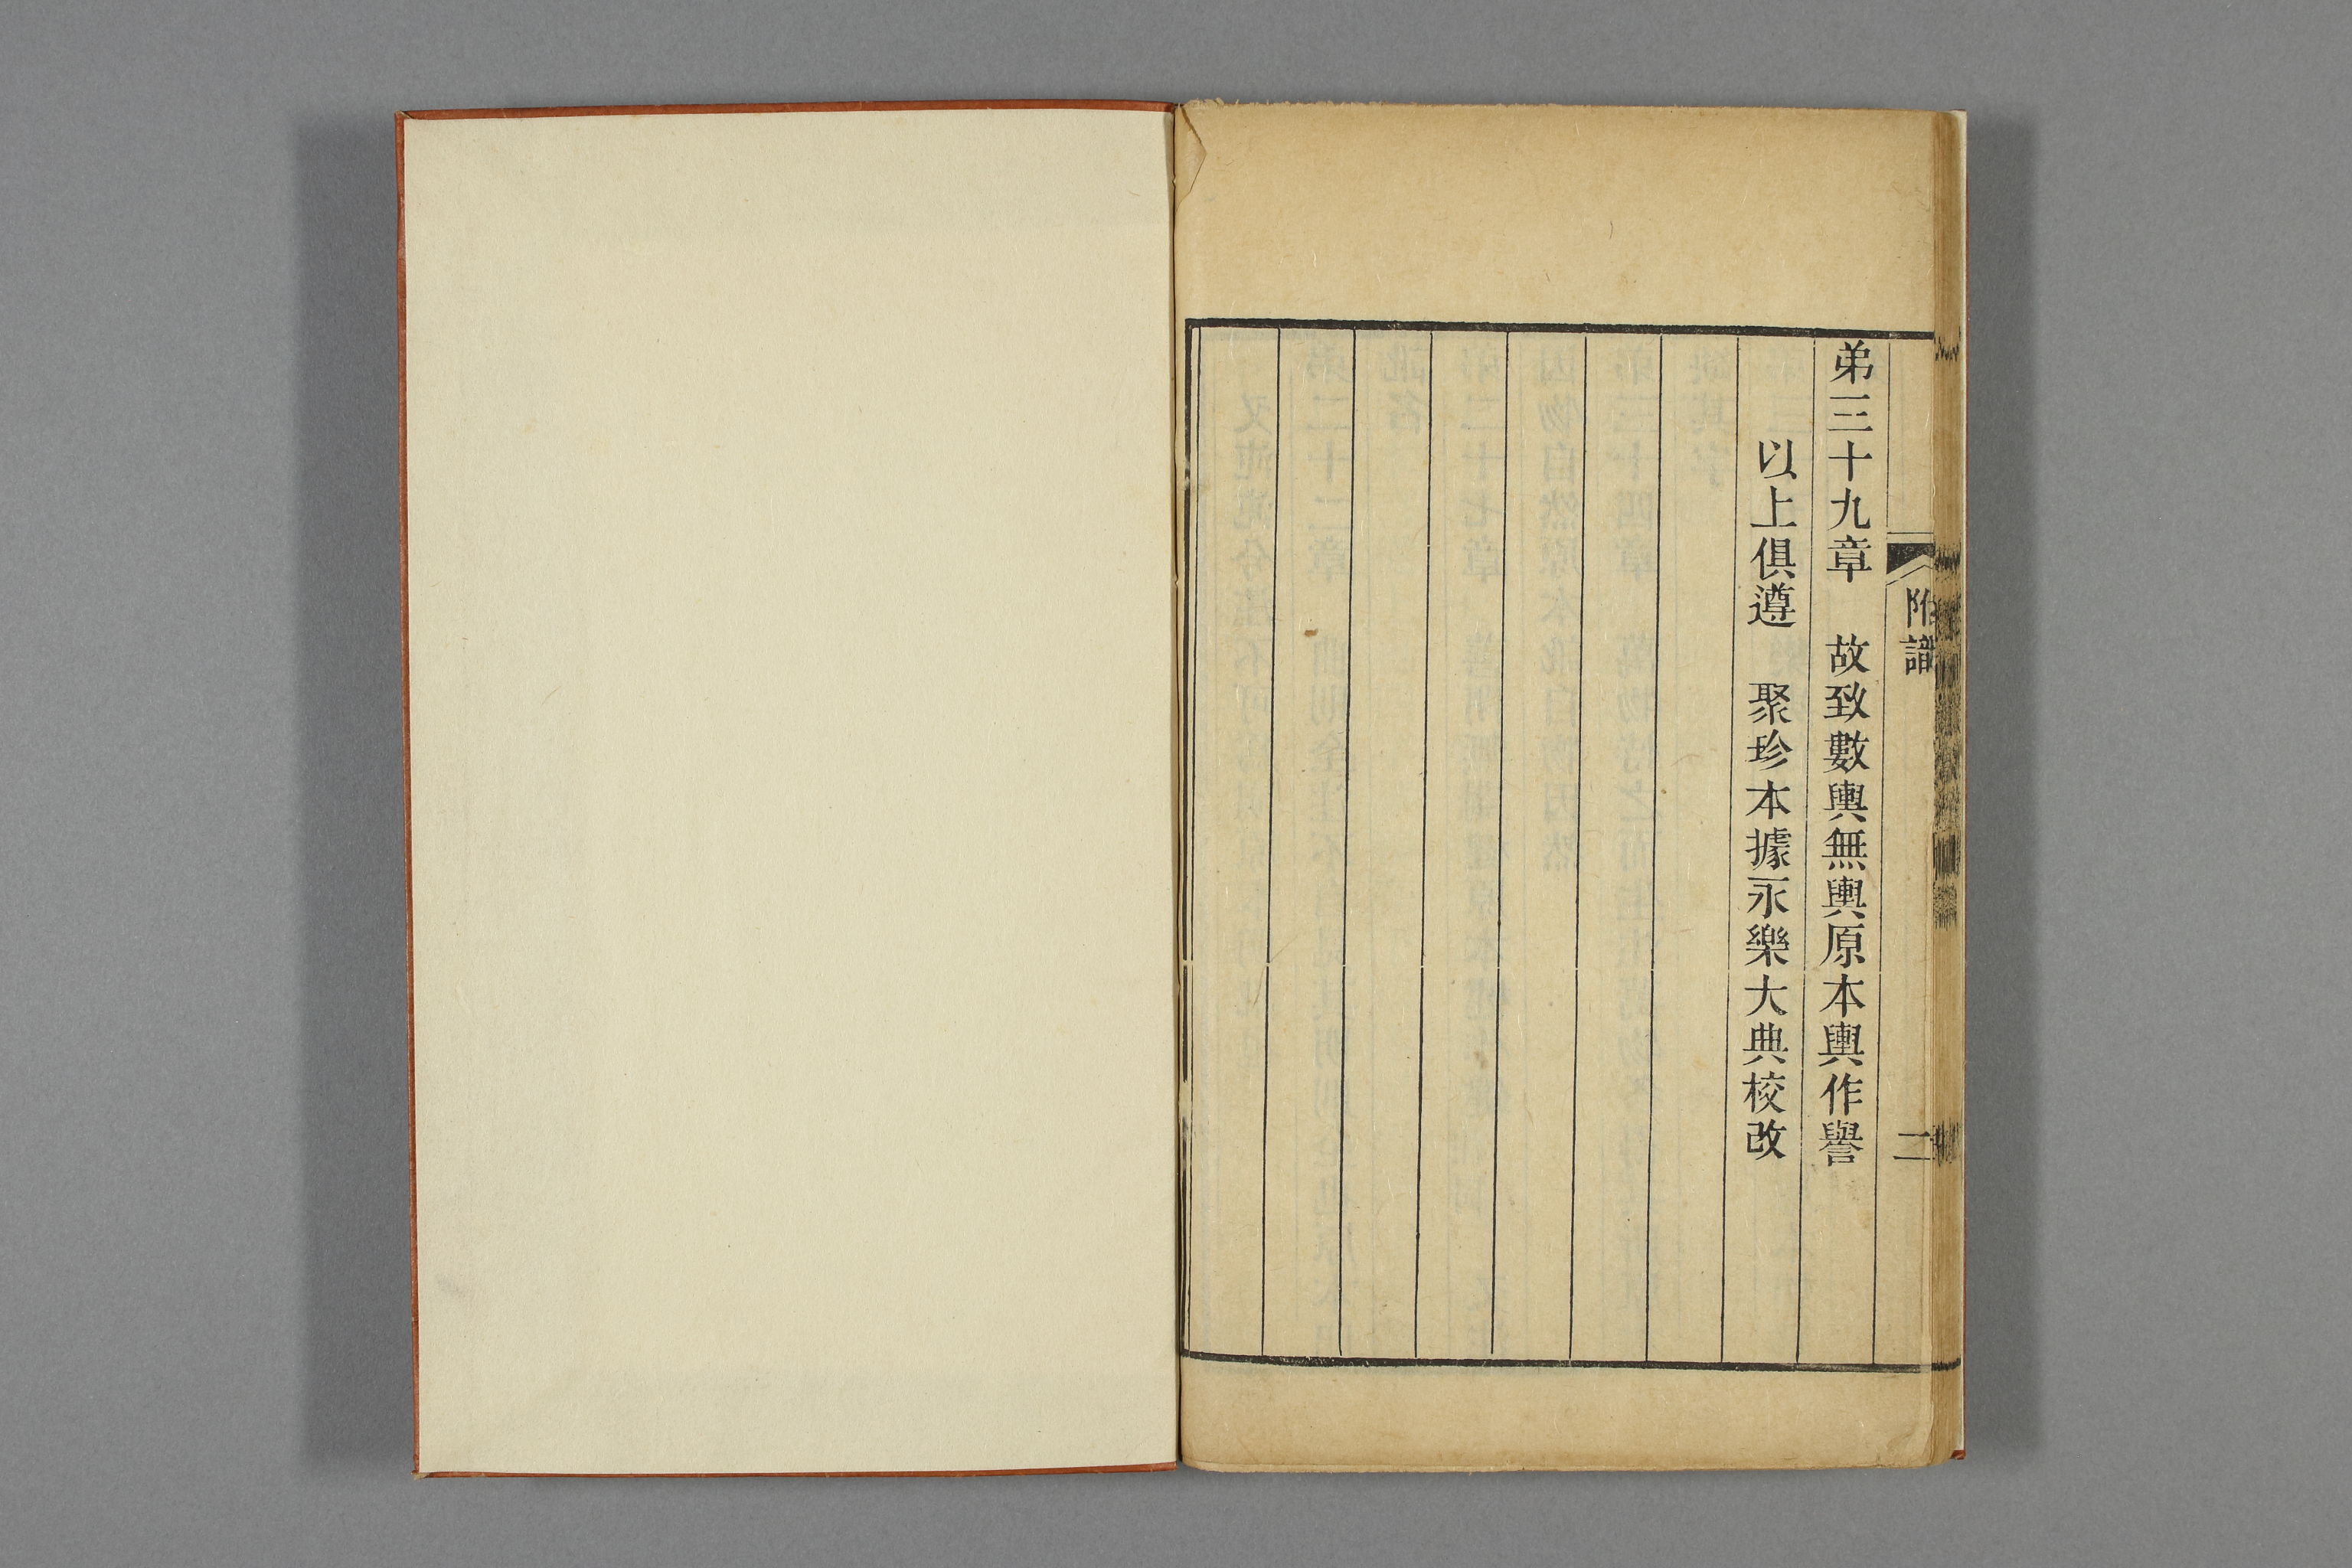 附識 二
弟三十九章　故致數輿無輿原本輿作譽
以上俱遵　聚珍本據永樂大典校改